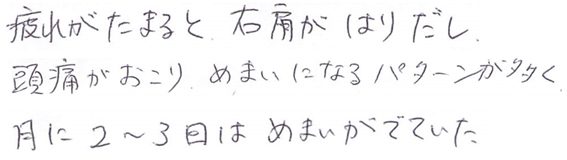 疲れがたまると、右肩がはりだし、
頭痛がおこり、めまいになるパターンが多く、
月に2~3日はめまいがでていた